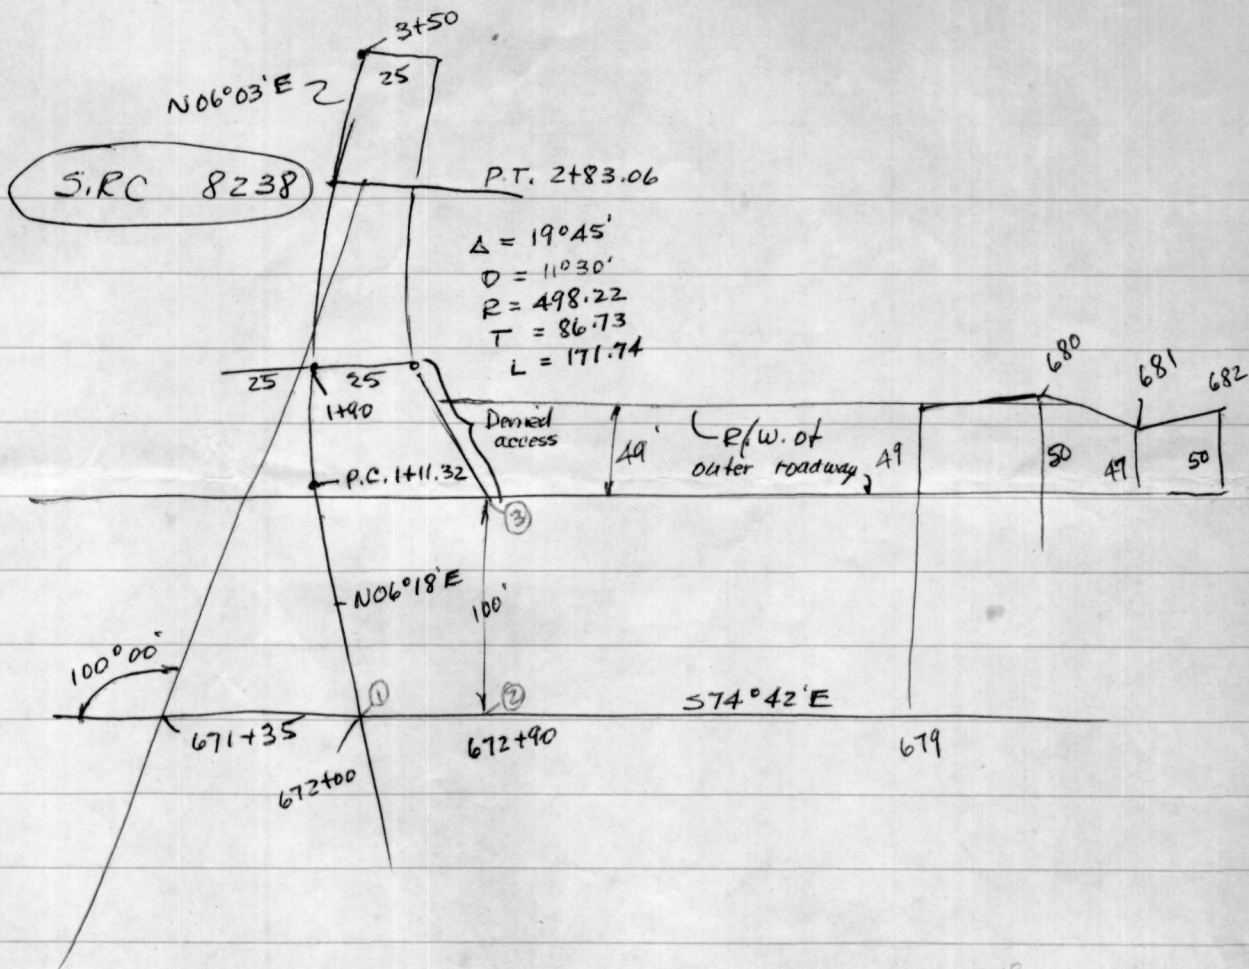 3+50
25
N06°03'E
S.RC 8238
P.T. 2+83.06
Δ = 19°45'
D = 11°30'
R = 498.22
T = 86.73
L = 171.74
25 25
1+90
Denied
access
49'
R/W. of
outer roadway
49
680
681
682
50
47
50
P.C. 1+11.32
3
N06°18'E
100'
100°00'
1
2
S74°42'E
671+35
672+00
672+90
679